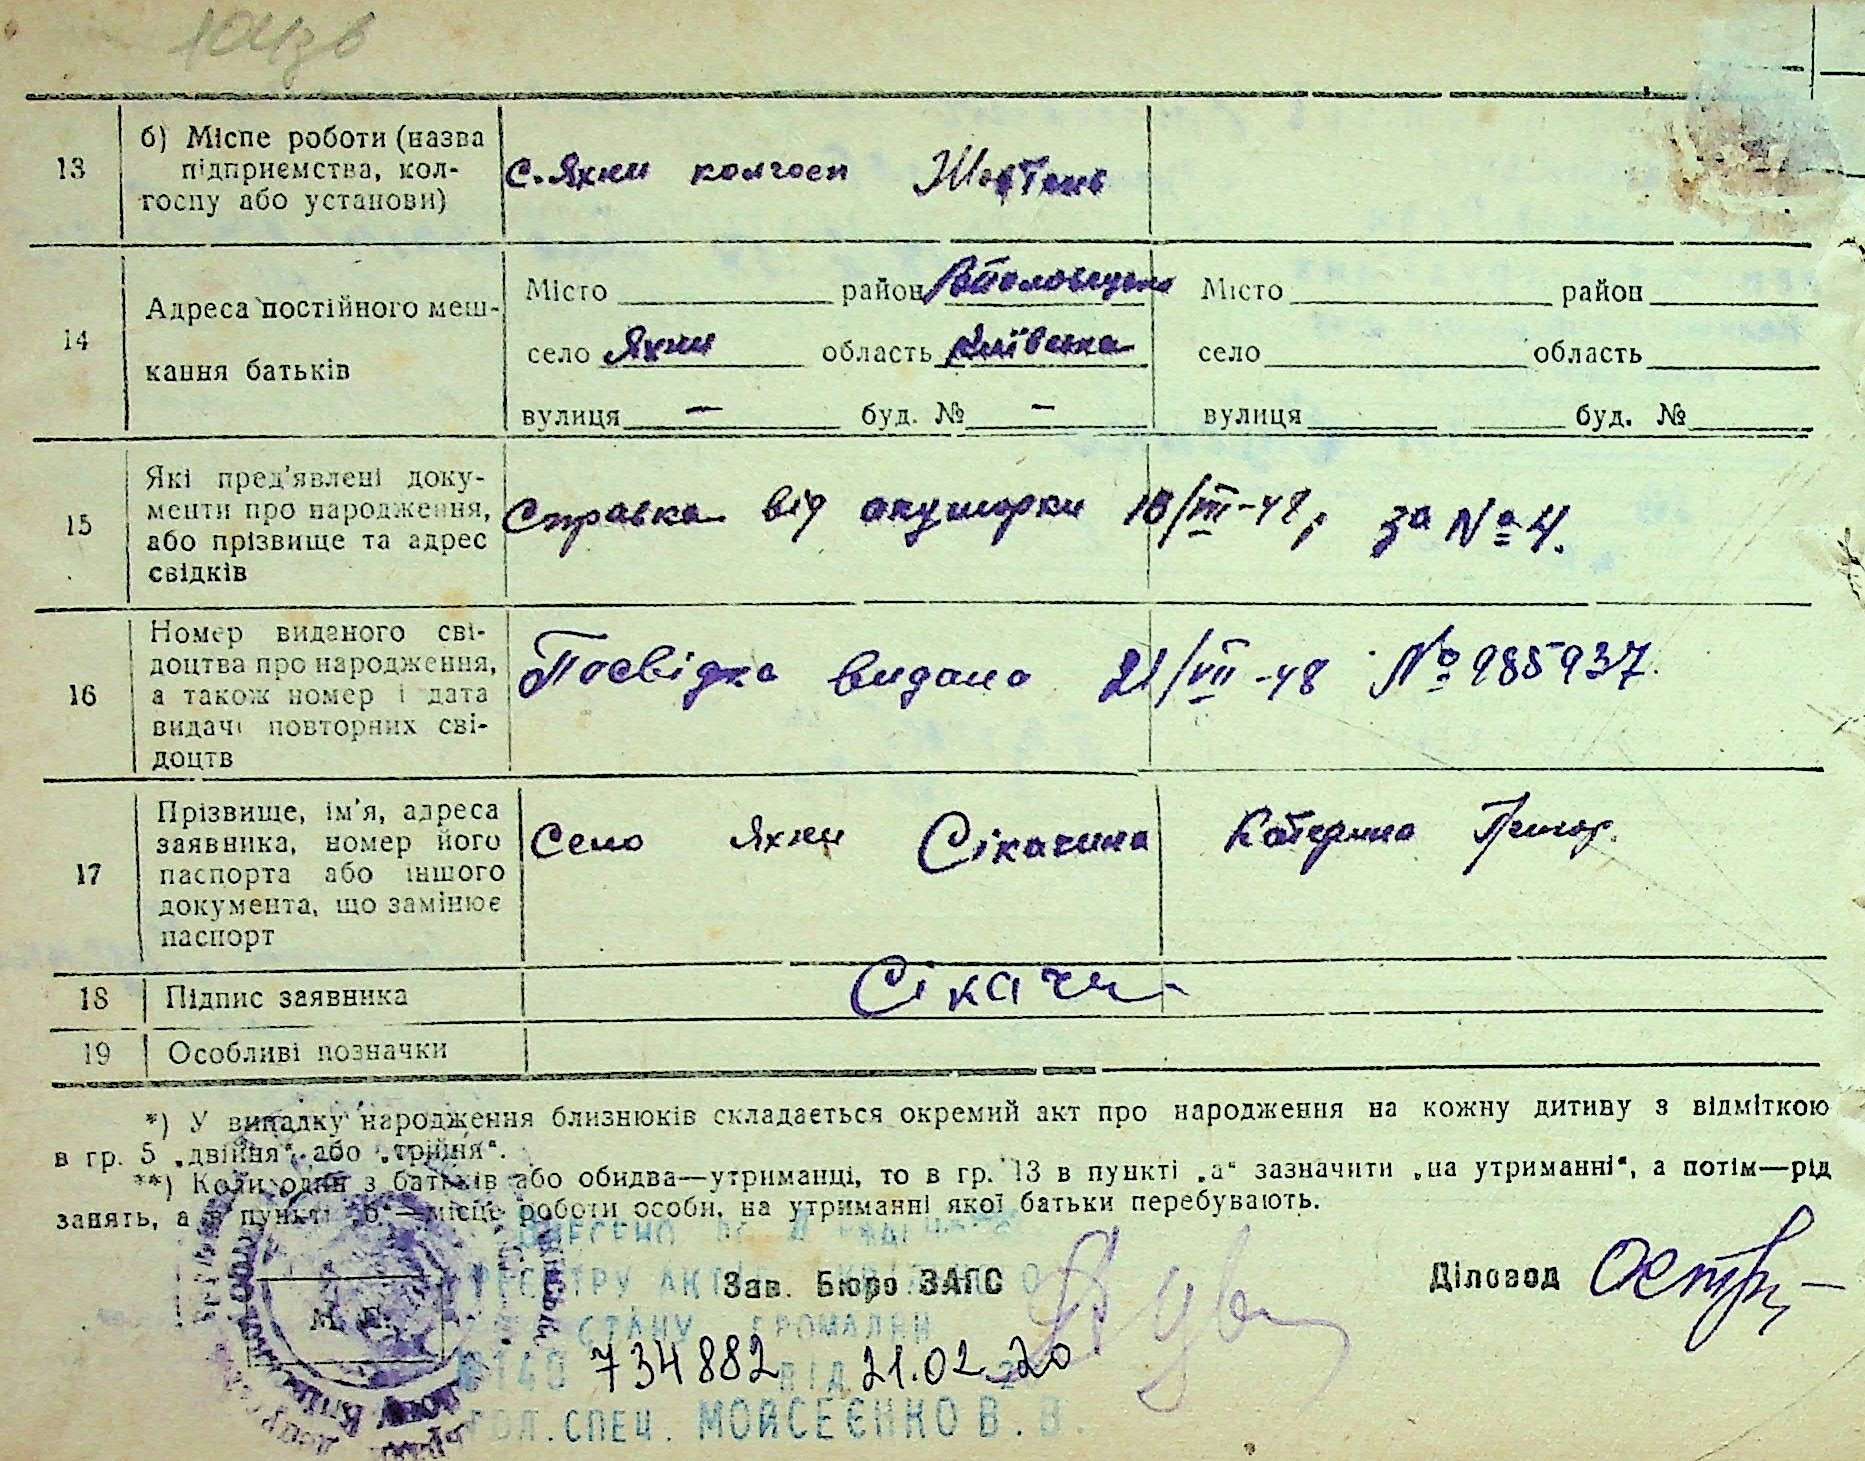 13
б) Місце роботи (назва
підприємства, кол-
госпу або установи)
с. Яхни колгосп Жовтень
14
Адреса постійного меш-
кання батьків
Місто район Місто район
село Яхни область Київська село область
вулиця — буд. № — вулиця буд. №
15
Які пред'явлені доку-
менти про народження,
або прізвище та адрес
свідків
Справка від акушорки 18/VII-48, за № 4.
16
Номер виданого сві-
доцтва про народження,
а також номер і дата
видачі повторних сві-
доцтв
Посвідка видана 21/VII-48 № 985937.
17
Прізвище, ім'я, адреса
заявника, номер його
паспорта або іншого
документа, що замінює
паспорт
Село Яхни Сікачина Катерина Григор.
18 Підпис заявника
Сікачи
19 Особливі позначки
*) У випадку народження близнюків складається окремий акт про народження на кожну дитину з відміткою
в гр. 5 „двійня“ або „трійня“.
**) Коли один з батьків або обидва—утриманці, то в гр. 13 в пункті „а“ зазначити „на утриманні“, а потім—рід
занять, а в пункті „б“—місце роботи особи, на утриманні якої батьки перебувають.
ВНЕСЕНО ДО ДЕРЖАВНОГО
РЕЄСТРУ АКТІВ ЦИВІЛЬНОГО
Зав. Бюро ЗАГС Діловод
СТАНУ ГРОМАДЯН
М. П.
734882 ВІД 21.02.20
ГОЛ. СПЕЦ. МОЙСЕЄНКО В. В.